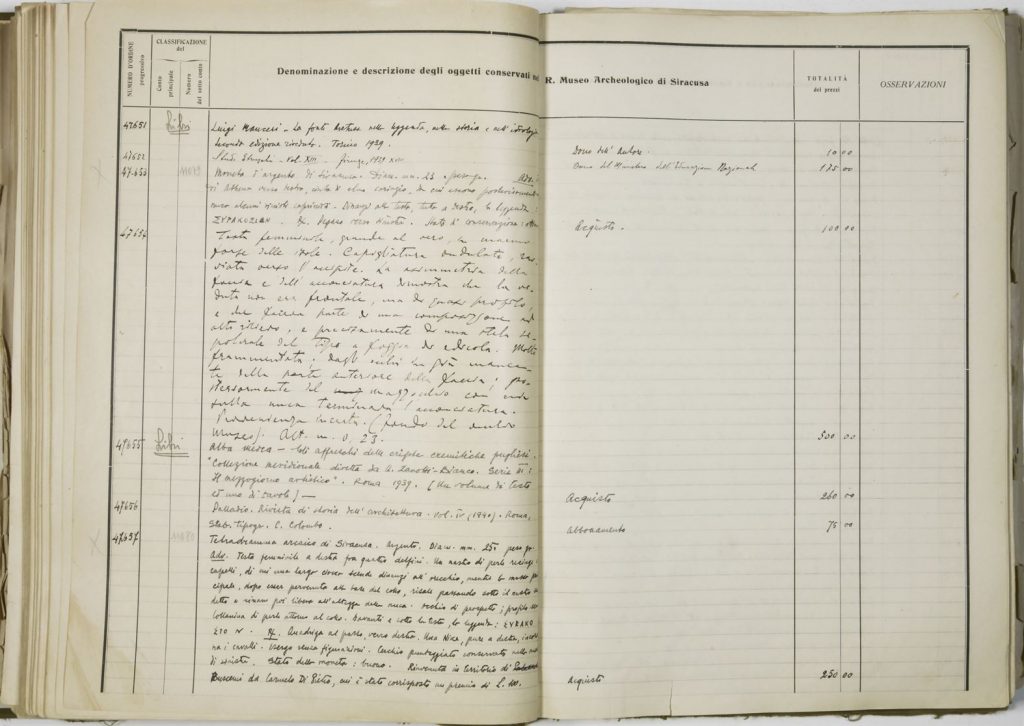 NUMERO D'ORDINE progressivo
CLASSIFICAZIONE del
Conto principale
Numero del sotto conto
Denominazione e descrizione degli oggetti conservati nel R. Museo Archeologico di Siracusa
TOTALITÀ dei prezzi
OSSERVAZIONI
47651 Libri Luigi Mauceri - La fonte Aretusa nella leggenda, nella storia e nell'idrologia
Seconda edizione riveduta. Torino 1939. Dono dell'Autore. 10 00
47652 Studi Etruschi - Vol. XIII - Firenze, 1939 XVII Dono del Ministero dell'Educazione Nazionale 175 00
47653 Moneta d'argento di Siracusa - Diam. mm. 23
di Athena verso destra, da cui escono posteriormente
alcuni Dinanzi alla testa, la leggenda:
ΣΥΡΑΚΟΣΙΩΝ. Pegaso verso sinistra. Stato di conservazione: Acquisto. 100 00
47654 Testa femminile, grande al vero, in marmo
forse delle isole. Capigliatura ondulata, rav-
viata verso l'occipite. La asimmetria della
faccia e dell'acconciatura dimostra che la ve-
duta non era frontale, ma di quasi profilo,
e che faceva parte di una composizione ad
alto rilievo, e precisamente di una stela se-
polcrale del tipo a foggia di edicola. Molto
frammentata: dagli occhi in giù mancan-
te della parte anteriore della faccia; po-
steriormente del mazzocchio con cui
sulla nuca terminava l'acconciatura.
Provenienza incerta. (fondo del
Museo). Alt. m. 0,23. 500 00
47655 Libri Alba Medea - Gli affreschi delle cripte eremitiche pugliesi.
"Collezione meridionale diretta da U. Zanotti-Bianco. Serie III:
Il mezzogiorno artistico". Roma 1939. [Un volume di testo
ed uno di tavole] - Acquisto 260 00
47656 Palladio. Rivista di storia dell'architettura. Vol. IV (1940). Roma,
Stab. tipogr. C. Colombo. Abbonamento 75 00
47657 Tetradramma arcaico di Siracusa. Argento. Diam. mm. 25; peso gr.
Testa femminile a destra fra quattro delfini. Un nastro di perle recinge i
capelli, di cui una larga ciocca scende dinanzi all'orecchio, mentre la massa prin
cipale, dopo esser pervenuta alla base del collo, risale passando sotto il nastro
detto e rimane poi libera all'altezza della nuca. Occhio di prospetto;
Collanina di perle attorno al collo. Davanti e sotto la testa, la leggenda: ΣΥΡΑΚΟ
ΣΙΟΝ. Quadriga al passo, verso destra. Una Nike, pure a destra, incoro
na i cavalli. Esergo senza figurazioni. Cerchio punteggiato conservato nella
di sinistra. Stato della moneta: buono. Rinvenuta in territorio di
Buscemi da Carmelo Di Pietro, cui è stato corrisposto un premio di L. Acquisto 250 00